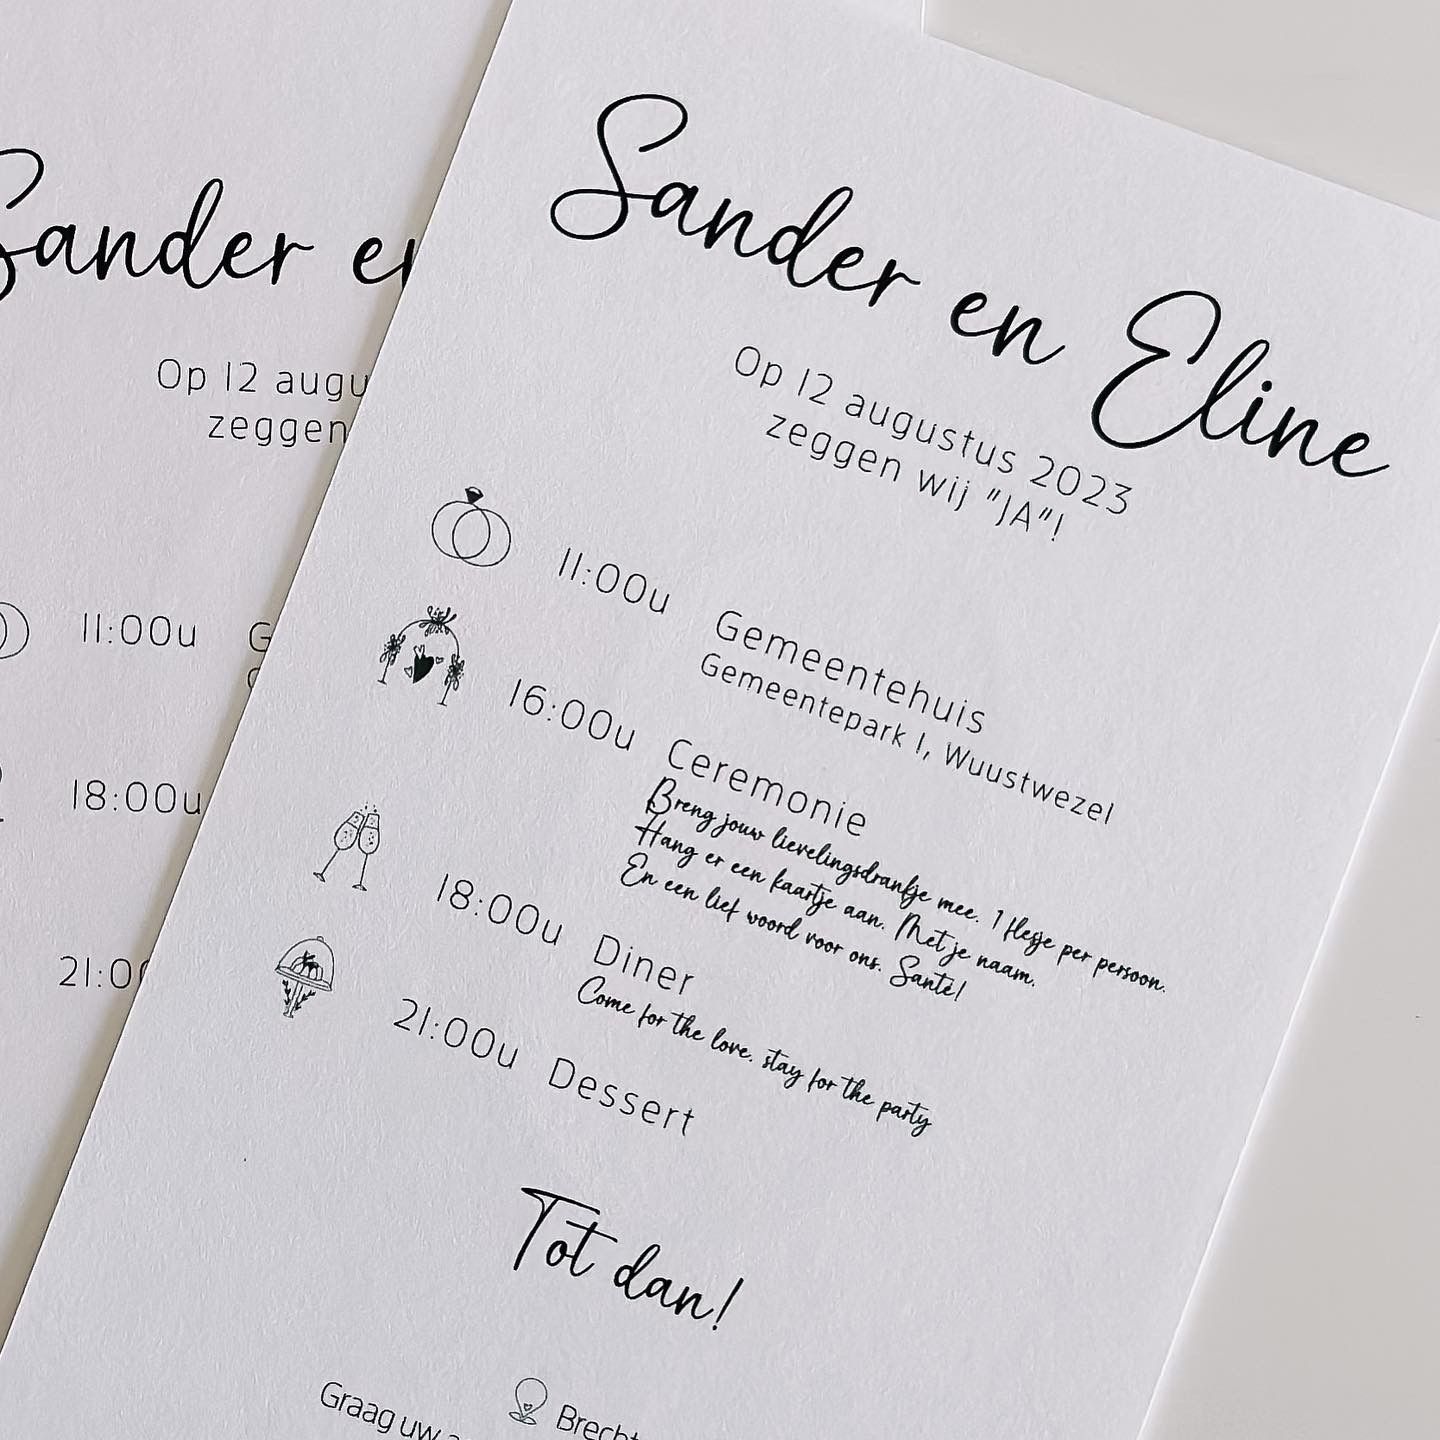 Sander en
Op 12 augu
zeggen
11:00u G
18:00u
21:0
Sander en Eline
Op 12 augustus 2023
zeggen wij "JA"!
11:00u Gemeentehuis
Gemeentepark 1, Wuustwezel
16:00u Ceremonie
Breng jouw lievelingsdrankje mee. 1 flesje per persoon.
Hang er een kaartje aan. Met je naam.
En een lief woord voor ons. Santé!
18:00u Diner
Come for the love, stay for the party
21:00u Dessert
Tot dan!
Brecht
Graag uw